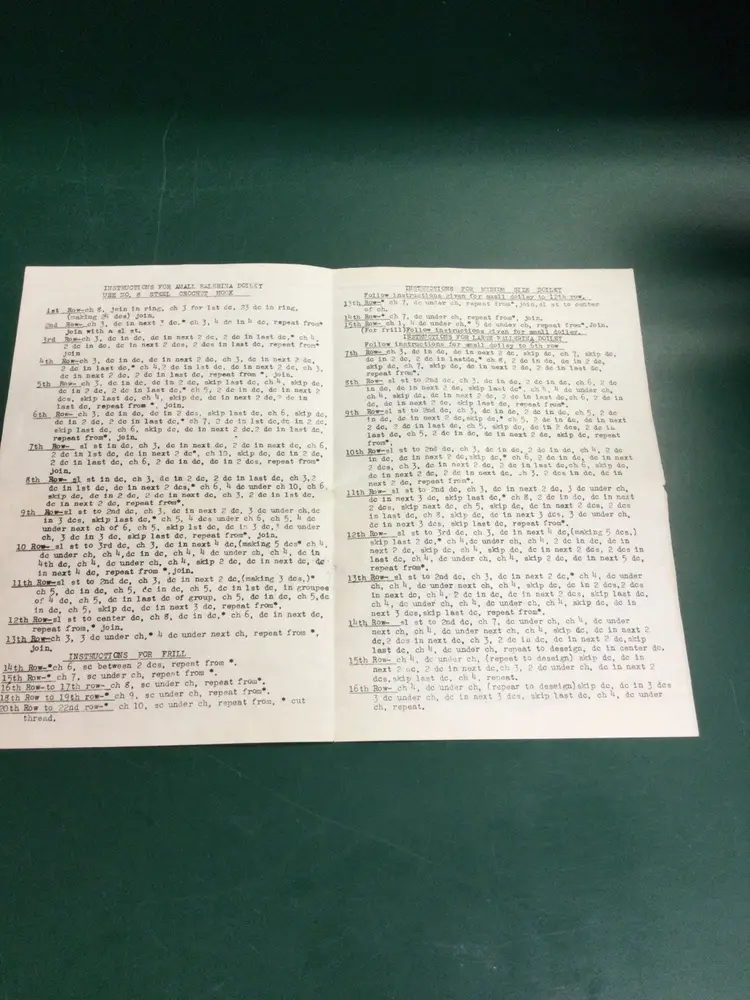 INSTRUCTIONS FOR AMALL BALERINA DOILEY
USE NO. 8 STEEL CROCHET HOOK
1st Row-ch 8, join in ring, ch 3 for 1st dc, 23 dc in ring,
(making 24 dcs) join.
2nd Row- ch 3, dc in next 3 dc,* ch 3, 4 dc in 4 dc, repeat from*
join with a sl st.
3rd Row- ch 3, dc in dc, dc in next 2 dc, 2 dc in last dc,* ch 4,
2 dc in dc, dc in next 2 dcs, 2 dcs in last dc, repeat from*
join
4th Row-ch 3, dc in dc, dc in next 2 dc, ch 3, dc in next 2 dc,
2 dc in last dc,* ch 4,2 dc in 1st dc, dc in next dc, ch 3,
dc in next 2 dc, 2 dc in last dc, repeat from *, join.
5th Row- ch 3, dc in dc, dc in 2 dc, skip last dc, ch 4, skip dc,
dc in 2 dc, 2 dc in last dc,* ch 5, 2 dc in dc, dc in next 2
dcs, skip last dc, ch 4, skip dc, dc in next 2 dc,2 dc in
last dc, repeat from *, join.
6th Row- ch 3, dc in dc, dc in 2 dcs, skip last dc, ch 6, skip dc,
dc in 2 dc, 2 dc in last dc,* ch 7, 2 dc in 1st dc,dc in 2 dc,
skip last dc, ch 6, skip dc, dc in next 2 dc,2 dc in last dc,
repeat from*, join.
7th Row- sl st in dc, ch 3, dc in next dc, 2 dc in next dc, ch 6,
2 dc in 1st dc, dc in next 2 dc*, ch 10, skip dc, dc in 2 dc,
2 dc in last dc, ch 6, 2 dc in dc, dc in 2 dcs, repeat from*
join.
8th Row- sl st in dc, ch 3, dc in 2 dc, 2 dc in last dc, ch 3,2
dc in 1st dc, dc in next 2 dcs,* ch 6, 4 dc under ch 10, ch 6,
skip dc, dc in 2 dc, 2 dc in next dc, ch 3, 2 dc in 1st dc,
dc in next 2 dc, repeat from*.
9th Row-sl st to 2nd dc, ch 3, dc in next 2 dc, 3 dc under ch,dc
in 3 dcs, skip last dc,* ch 5, 4 dcs under ch 6, ch 5, 4 dc
under next ch of 6, ch 5, skip 1st dc, dc in 3 dc,3 dc under
ch, 3 dc in 3 dc, skip last dc, repeat from*, join.
10 Row- sl st to 3rd dc, ch 3, dc in next 4 dc,(making 5 dcs* ch 4,
dc under ch, ch 4,dc in dc, ch 4, 4 dc under ch, ch 4, dc in
4th dc, ch 4, dc under ch, ch 4, skip 2 dc, dc in next dc, dc
in next 4 dc, repeat from *,join.
11th Row-sl st to 2nd dc, ch 3, dc in next 2 dc,(making 3 dcs,)*
ch 5, dc in dc, ch 5, dc in dc, ch 5, dc in 1st dc, in groupes
of 4 dc, ch 5, dc in last dc of group, ch 5, dc in dc, ch 5,dc
in dc, ch 5, skip dc, dc in next 3 dc, repeat from*,
12th Row-sl st to center dc, ch 8, dc in dc,* ch 6, dc in next dc,
repeat from,* join.
13th Row-ch 3, 3 dc under ch,* 4 dc under next ch, repeat from *,
join.
INSTRUCTIONS FOR FRILL
14th Row-*ch 6, sc between 2 dcs, repeat from *.
15th Row-* ch 7, sc under ch, repeat from *.
16th Row-to 17th row- ch 8, sc under ch, repeat from*.
18th Row to 19th row-* ch 9, sc under ch, repeat from*.
20th Row to 22nd row-* ch 10, sc under ch, repeat from, * cut
thread.
INSTRUCTIONS FOR MEDIUM SIZE DOILEY
Follow instructions given for small doiley to 12th row.
13th Row-* ch 7, dc under ch, repeat from*,join,sl st to center
of ch.
14th Row-* ch 7, dc under ch, repeat from*, join.
15th Row- ch 1, 4 dc under ch,* 5 dc under ch, repeat from*,Join.
(For frill)Follow instructions given for small doiley.
INSTRUCTIONS FOR LARGE BALLERINA DOILEY
Follow instructions for small doiley to 6th row
7th Row- ch 3, dc in dc, dc in next 2 dc, skip dc, ch 7, skip dc,
dc in 2 dc, 2 dc in lastdc,* ch 8, 2 dc in dc, dc in 2 dc,
skip dc, ch 7, skip dc, dc in next 2 dc, 2 dc in last dc,
repeat from*.
8th Row- sl st to 2nd dc, ch 3, dc in dc, 2 dc in dc, ch 6, 2 dc
in dc, dc in next 2 dc, skip last dc*, ch 4, 4 dc under ch,
ch 4, skip dc, dc in next 2 dc, 2 dc in last dc,ch 6, 2 dc in
dc, dc in next 2 dc, skip last dc, repeat from*.
9th Row- sl st to 2nd dc, ch 3, dc in dc, 2 dc in dc, ch 5, 2 dc
in dc, dc in next 2 dc, skip dc,* ch 5, 2 dc in dc, dc in next
2 dc, 2 dc in last dc, ch 5, skip dc, dc in 2 dcs, 2 dc in
last dc, ch 5, 2 dc in dc, dc in next 2 dc, skip dc, repeat
from*.
10th Row- sl st to 2nd dc, ch 3, dc in dc, 2 dc in dc, ch 4, 2 dc
in dc, dc in next 2 dc, skip dc,* ch 6, 2 dc in dc, dc in next
2 dcs, ch 3, dc in next 2 dc, 2 dc in last dc,ch 6, skip dc,
dc in next 2 dc, 2 dc in next dc, ch 4, 2 dc in dc, dc in
next 2 dc, repeat from*.
11th Row- sl st to 2nd dc, ch 3, dc in next 2 dc, 3 dc under ch,
dc in next 3 dc, skip last dc,* ch 8, 2 dc in dc, dc in next
2 dcs, skip next dc, ch 5, skip dc, dc in next 2 dcs, 2 dcs
in last dc, ch 8, skip dc, dc in next 3 dcs, 3 dc under ch,
dc in next 3 dcs, skip last dc, repeat from*.
12th Row- sl st to 3rd dc, ch 3, dc in next 4 dc,(making 5 dcs,)
skip last 2 dc,* ch 4,dc under ch, ch 4, 2 dc in dc, dc in
next 2 dc, skip dc, ch 4, skip dc, dc in next 2 dcs, 2 dcs in
last dc, ch 4, dc under ch, ch 4, skip 2 dc, dc in next 5 dc,
repeat from*.
13th Row- sl st to 2nd dc, ch 3, dc in next 2 dc,* ch 4, dc under
ch, ch 4, dc under next ch, ch 4, skip dc, dc in 2 dcs,2 dcs
in next dc, ch 4, 2 dc in dc, dc in next 2 dcs, skip last dc,
ch 4, dc under ch, ch 4, dc under ch, ch 4, skip dc, dc in
next 3 dcs,skip last dc, repeat from*.
14th Row- sl st to 2nd dc, ch 7, dc under ch, ch 4, dc under
next ch, ch 4, dc under next ch, ch 4, skip dc, dc in next 2
dc,2 dcs in next dc, ch 3, 2 dc in dc, dc in next 2 dc,skip
last dc, ch 4, dc under ch, repeat to deseign, dc in center dc.
15th Row- ch 4, dc under ch, (repeat to deseign) skip dc, dc in
next 2 dc, 2 dc in next dc,ch 3, 2 dc under ch, dc in next 2
dcs, skip last dc, ch 4, repeat.
16th Row- ch 4, dc under ch, (repear to deseign)skip dc, dc in 3 dcs
3 dc under ch, dc in next 3 dcs, skip last dc, ch 4, dc under
ch, repeat.